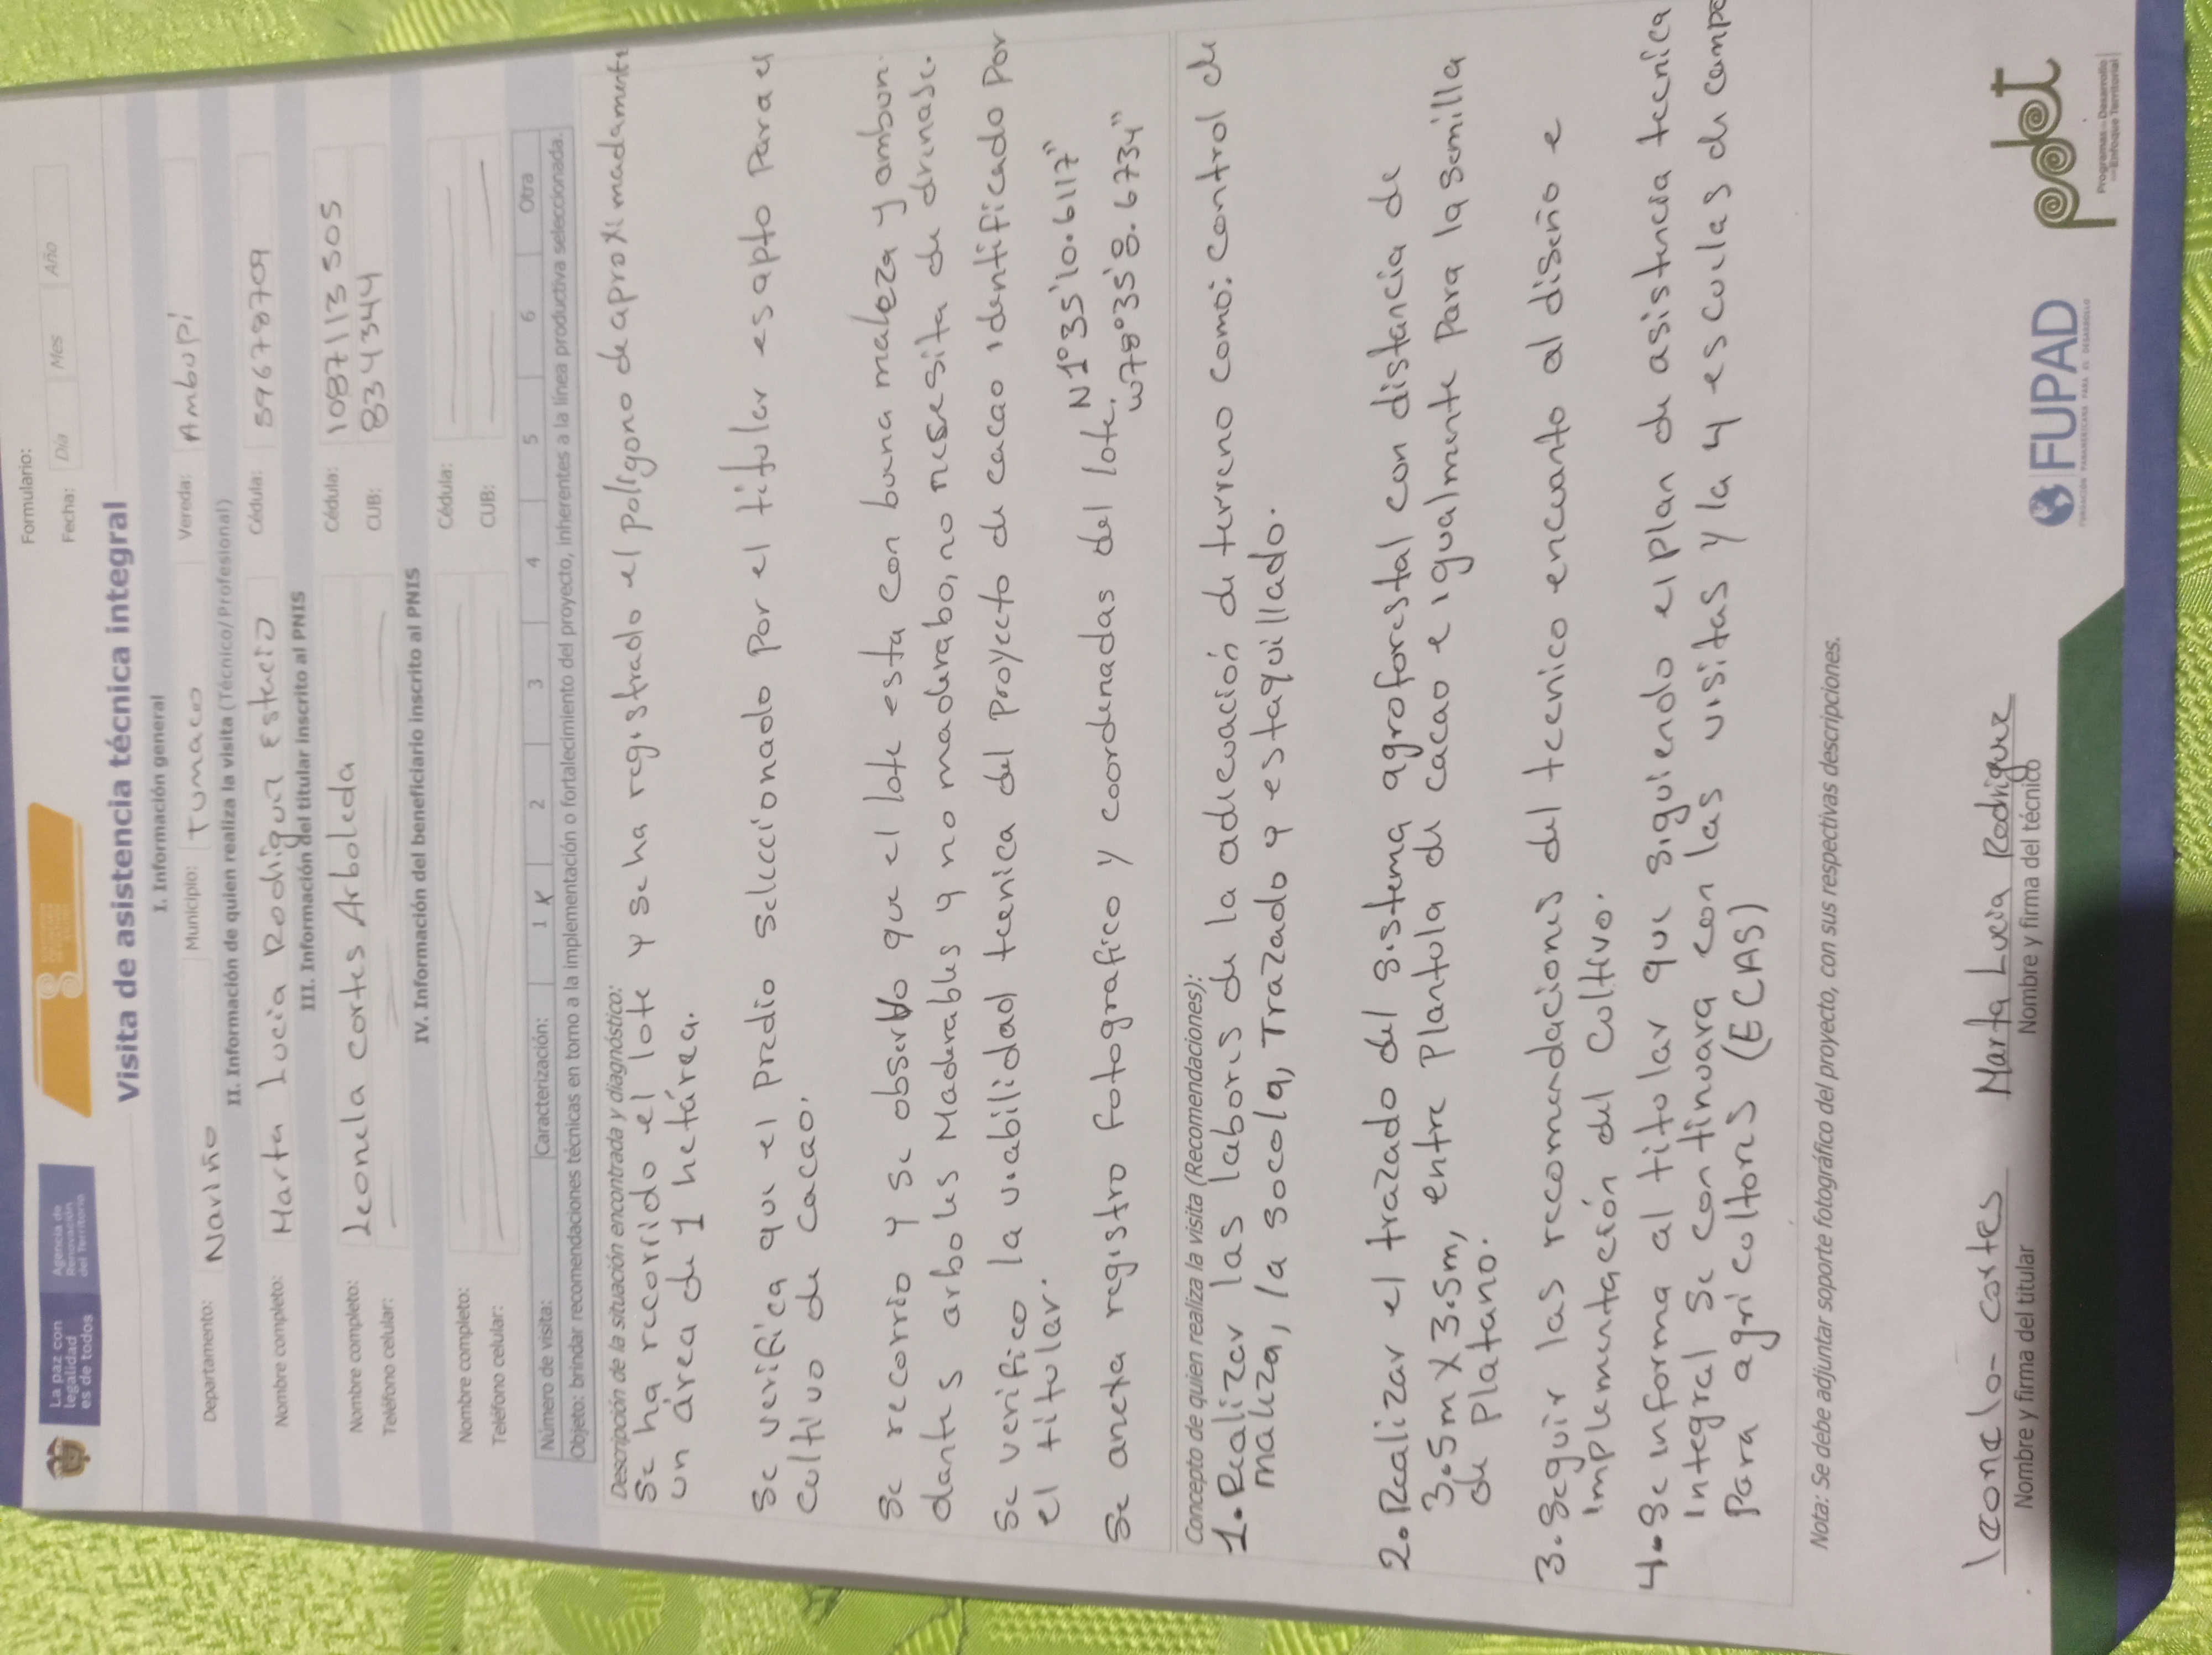 La paz con
legalidad
es de todos
Agencia de
Renovación
del Territorio
Formulario:
Fecha: Día Mes Año
Visita de asistencia técnica integral
I. Información general
Departamento: Nariño Municipio: tumaco Vereda: Ambupi
II. Información de quien realiza la visita (Técnico/Profesional)
Nombre completo: Marta Lucia Rodriguez Estacio Cédula: 59678709
III. Información del titular inscrito al PNIS
Nombre completo: Leonela cortes Arboleda Cédula: 1087113505
Teléfono celular: CUB: 834344
IV. Información del beneficiario inscrito al PNIS
Nombre completo: Cédula:
Teléfono celular: CUB:
Número de visita: Caracterización: 1 X 2 3 4 5 6 Otra
Objeto: brindar recomendaciones técnicas en torno a la implementación o fortalecimiento del proyecto, inherentes a la línea productiva seleccionada.
Descripción de la situación encontrada y diagnóstico:
Se ha recorrido el lote y se ha registrado el polígono de aproximadamente
un área de 1 hetárea.
Se verifica que el predio seleccionado por el titular es apto para el
cultivo de cacao.
Se recorrio y se observo que el lote esta con buena maleza y ambun-
dantes arboles Maderables y no maderabo, no nesesita de drenase.
Se verifico la viabilidad tecnica del proyecto de cacao identificado por
el titular.
Se aneta registro fotografico y coordenadas del lote. N1°35'10.6117"
W78°35'8.6734"
Concepto de quien realiza la visita (Recomendaciones):
1. Realizar las labores de la adecuación de terreno como: control de
maleza, la socola, Trazado y estaquillado.
2. Realizar el trazado del sistema agroforestal con distancia de
3.5m X 3.5m, entre plantula de cacao e igualmente para la semilla
de platano.
3. Seguir las recomendaciones del tecnico encuanto al diseño e
implementación del cultivo.
4. Se informa al titular que siguiendo el plan de asistencia tecnica
integral se continuara con las visitas y la 4 escuelas de campo
para agricultores (ECAS)
Nota: Se debe adjuntar soporte fotográfico del proyecto, con sus respectivas descripciones.
leonela cortes Marta Lucia Rodriguez
Nombre y firma del titular Nombre y firma del técnico
FUPAD
FUNDACIÓN PANAMERICANA PARA EL DESARROLLO
pdet
Programas de Desarrollo
con Enfoque Territorial